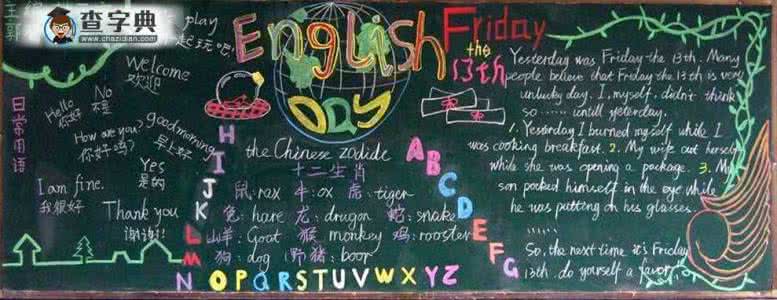 查字典
www.chazidian.com
play
起玩吧!
Welcome
欢迎
No
不是
Hello
你好
日常用语
How are you?
你好吗?
good morning
早上好
Yes
是的
I am fine.
我很好
Thank you
谢谢!
English
Day
the Chinese zodide
十二生肖
鼠:rax 牛:ox 虎:tiger
兔:hare 龙:drugon 蛇:snake
山羊:Goat 猴:monkey 鸡:rooster
狗:dog 野猪:boor
A B C D E F G
H I J K L M N O P Q R S T U V W X Y Z
Friday
the
13th
Yesterday was Friday the 13th. Many
people believe that Friday the 13th is very
unlucky day. I, myself, didn't think
so ...... untill yesterday.
1. Yesterday I burned myself while I
was cooking breakfast. 2. My wife cut herself
while she was opening a package. 3. My
son packed himself in the eye while
he was putting on his glasses
......
So, the next time it's Friday
13th. do yourself a favor,